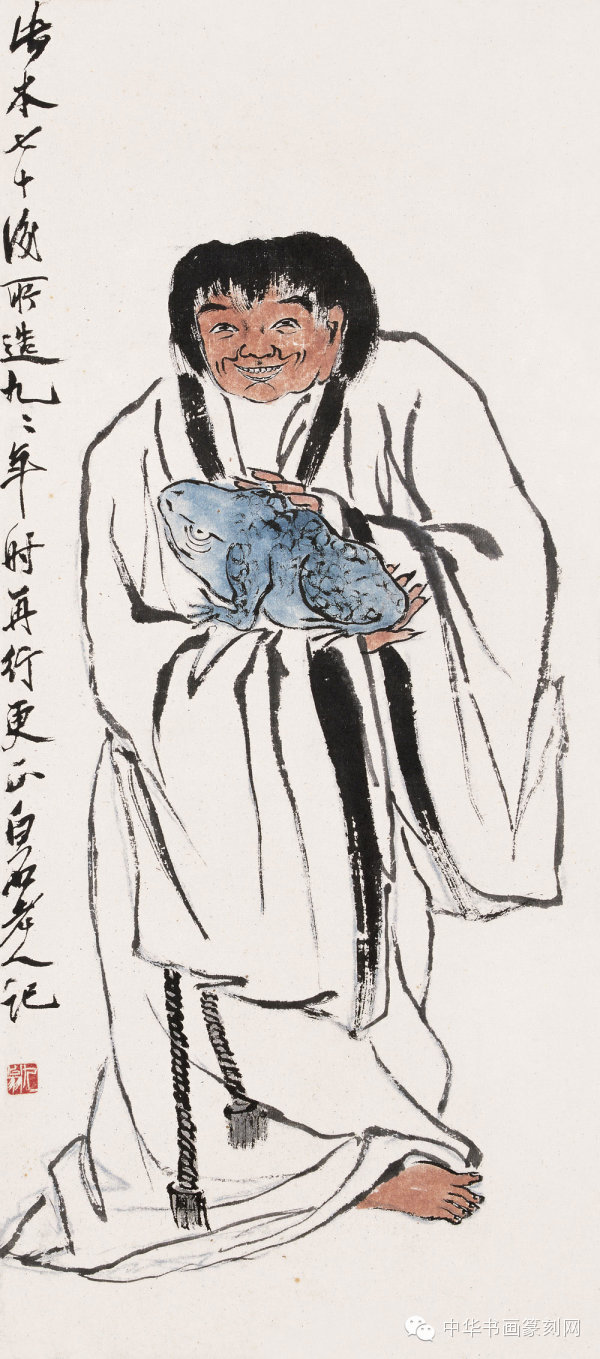 此本七十後所造九二年时再行更正白石老人记
中华书画篆刻网